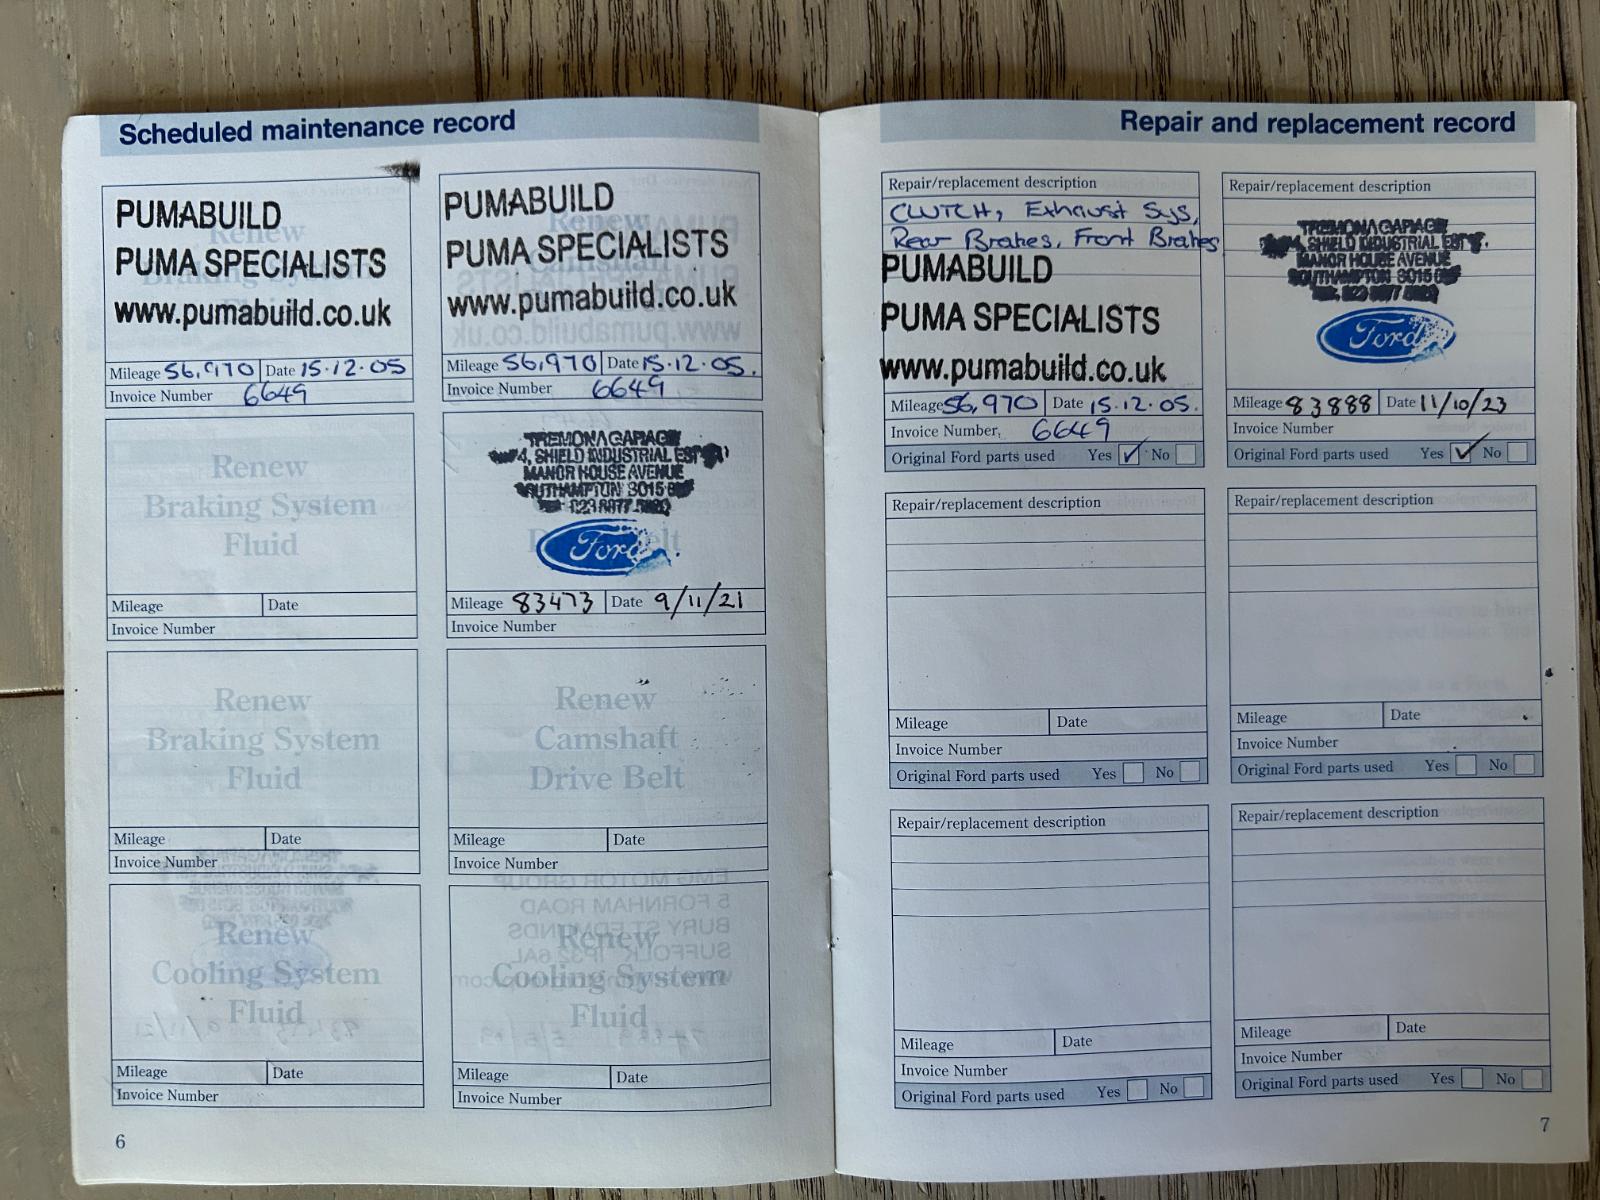 Scheduled maintenance record
PUMABUILD
PUMA SPECIALISTS
www.pumabuild.co.uk
Renew
Braking System
Fluid
Mileage 56,970 Date 15.12.05
Invoice Number 6649
PUMABUILD
PUMA SPECIALISTS
www.pumabuild.co.uk
Renew
Camshaft
Mileage 56,970 Date 15.12.05.
Invoice Number 6649
Renew
Braking System
Fluid
Mileage Date
Invoice Number
TREMONA GARAGE
4, SHIELD INDUSTRIAL EST
MANOR HOUSE AVENUE
SOUTHAMPTON SO15
Ford
Belt
Mileage 83473 Date 9/11/21
Invoice Number
Renew
Braking System
Fluid
Mileage Date
Invoice Number
Renew
Camshaft
Drive Belt
Mileage Date
Invoice Number
Renew
Cooling System
Fluid
Mileage Date
Invoice Number
Renew
Cooling System
Fluid
Mileage Date
Invoice Number
6
Repair and replacement record
Repair/replacement description
CLUTCH, Exhaust Sys,
Rear Brakes, Front Brakes
PUMABUILD
PUMA SPECIALISTS
www.pumabuild.co.uk
Mileage 56,970 Date 15.12.05.
Invoice Number, 6649
Original Ford parts used Yes ✓ No
Repair/replacement description
TREMONA GARAGE
4, SHIELD INDUSTRIAL EST.
MANOR HOUSE AVENUE
SOUTHAMPTON SO15
Ford
Mileage 83888 Date 11/10/23
Invoice Number
Original Ford parts used Yes ✓ No
Repair/replacement description
Mileage Date
Invoice Number
Original Ford parts used Yes No
Repair/replacement description
Mileage Date
Invoice Number
Original Ford parts used Yes No
Repair/replacement description
Mileage Date
Invoice Number
Original Ford parts used Yes No
Repair/replacement description
Mileage Date
Invoice Number
Original Ford parts used Yes No
7